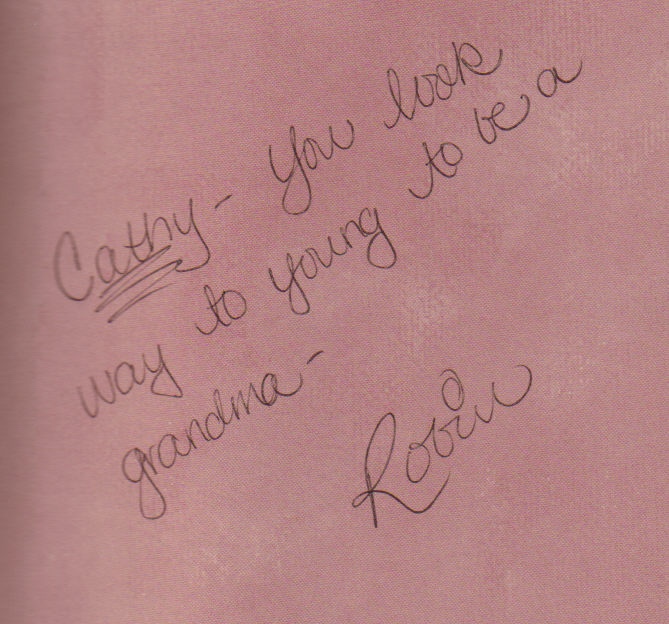 Cathy - You look
way to young to be a
grandma -
Robin